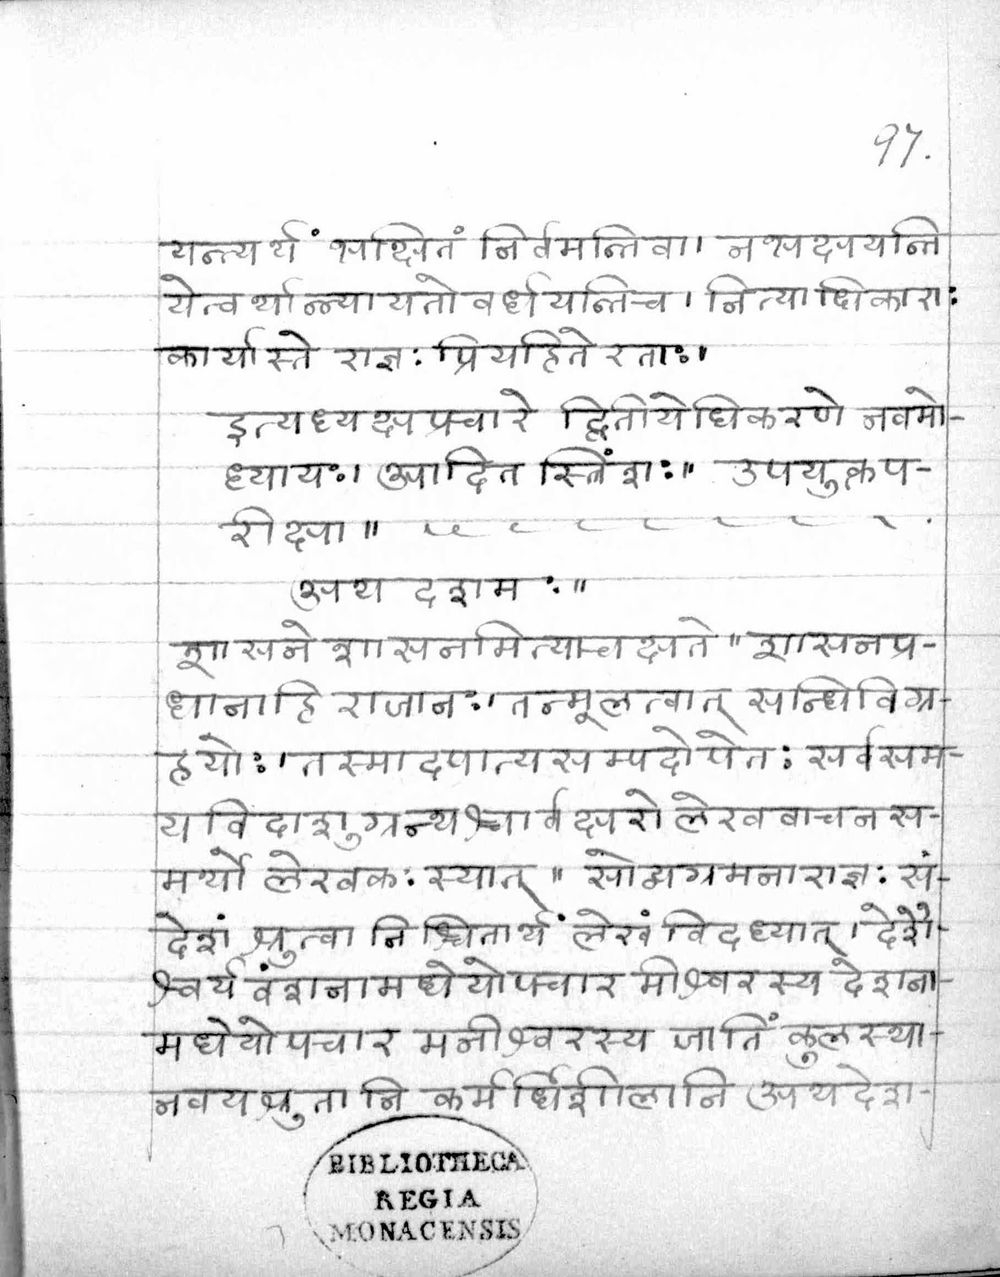 97.
यन्त्यर्थं भक्षितं निर्वमन्ति वा। न भक्षयन्ति
येत्वर्थान्न्यायतो वर्धयन्ति च। नित्याधिकाराः
कार्यास्ते राज्ञः प्रियहिते रताः।
इत्यध्यक्षप्रचारे द्वितीयेधिकरणे नवमो-
ध्यायः। आदितस्त्रिंशः॥ उपयुक्तप-
रीक्षा॥
अथ दशमः॥
शासने शासनमित्याचक्षते॥ शासनप्र-
धानाहि राजानः। तन्मूलत्वात् सन्धिविग्र-
हयोः। तस्मादमात्यसम्पदोपेतः सर्वसम-
यविदाशुग्रन्थश्चार्वक्षरो लेखवाचनस-
मर्थो लेखकः स्यात्॥ सोव्यग्रमनाराज्ञः सं-
देशं श्रुत्वा निश्चितार्थं लेखं विदध्यात्। देशै-
श्वर्यवंशनामधेयोपचारमीश्वरस्य देशना-
मधेयोपचारमनीश्वरस्य जातिं कुलस्था-
नवयश्रुतानि कर्मर्धिशीलानि अथ देश-
BIBLIOTHECA
REGIA
MONACENSIS